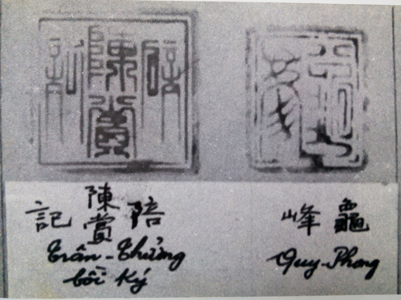 陳賞陪記
陳賞陪記
Trần-Thưởng
bồi Ký
龜峰
Quy-Phong